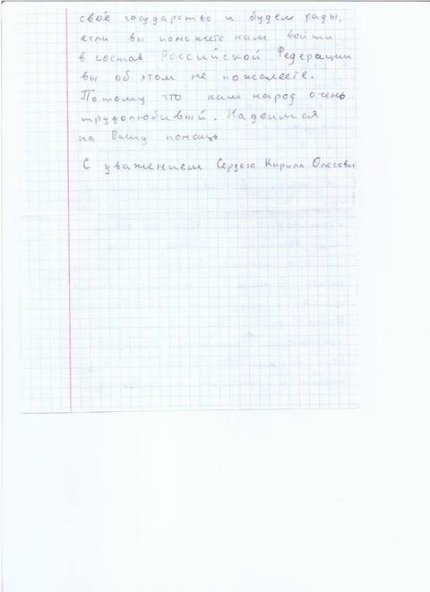 своё государство и будем рады,
если вы поможете нам войти
в состав Российской Федерации
вы об этом не пожалеете.
Потому что наш народ очень
трудолюбивый. Надеимся
на Вашу помощь
С уважением Сердега Кирилл Олегович